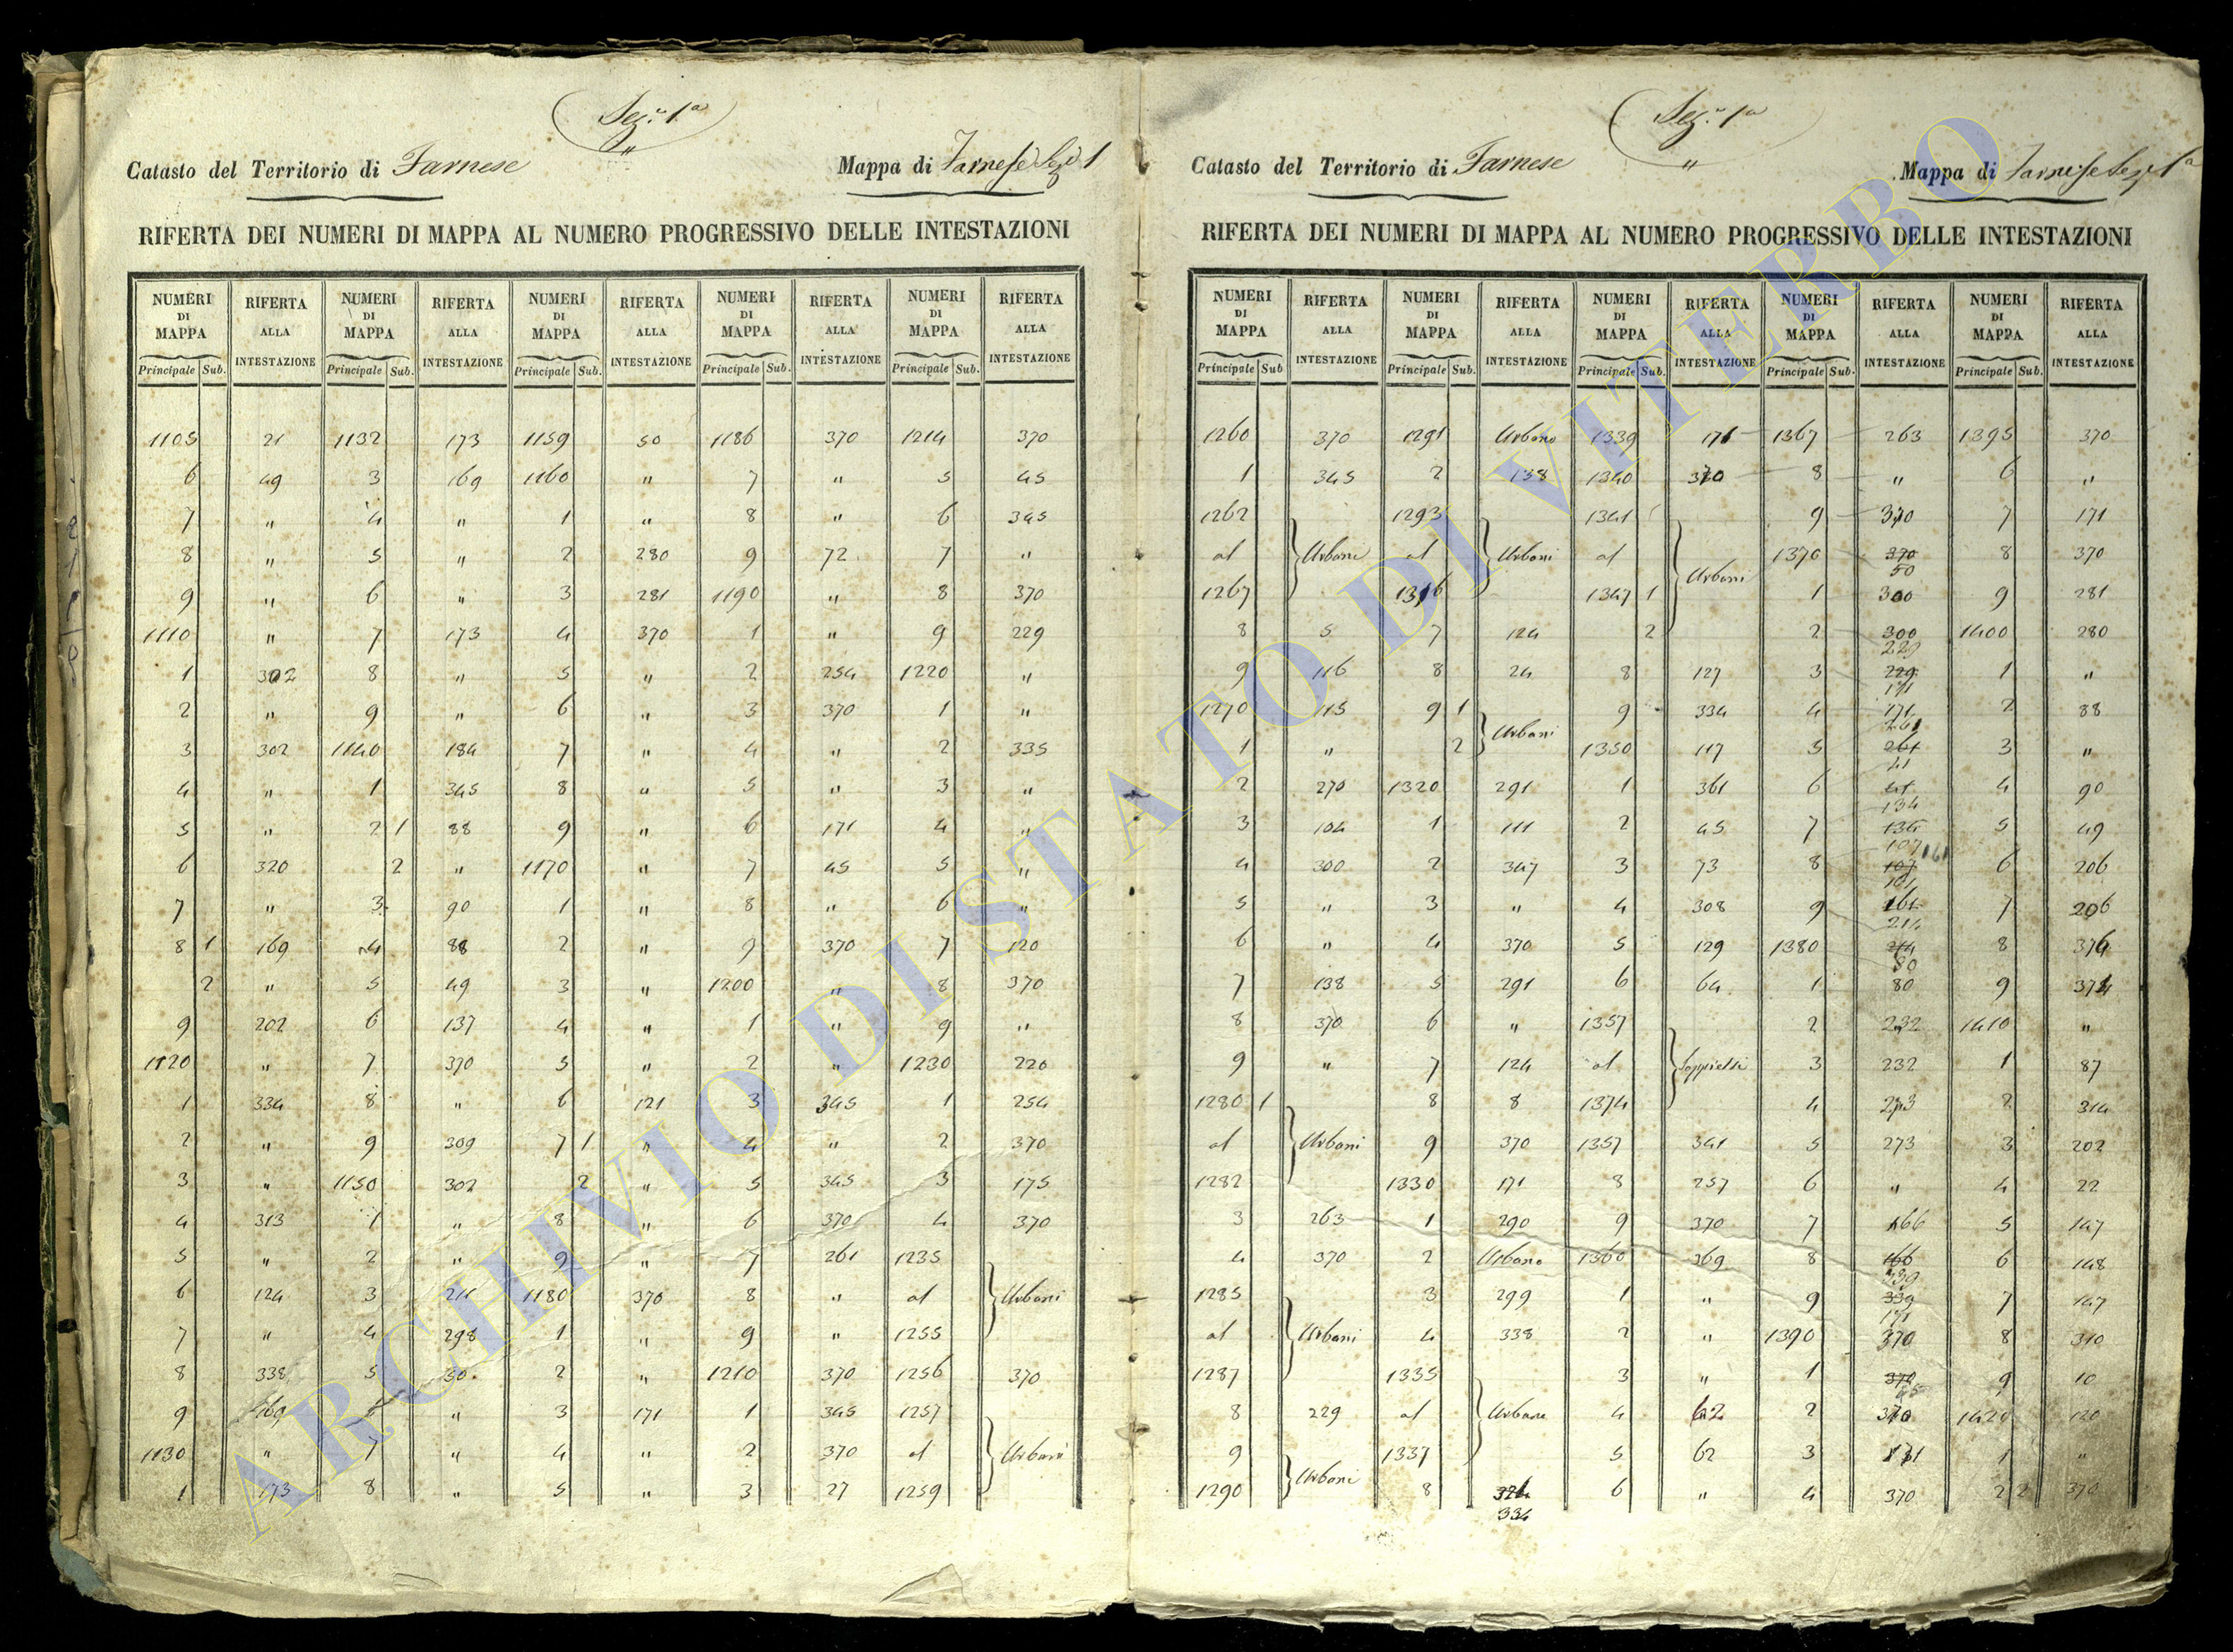 Sez.e 1a
Catasto del Territorio di Farnese
Mappa di Farnese Sez.e 1
RIFERTA DEI NUMERI DI MAPPA AL NUMERO PROGRESSIVO DELLE INTESTAZIONI
NUMERI DI MAPPA RIFERTA ALLA INTESTAZIONE NUMERI DI MAPPA RIFERTA ALLA INTESTAZIONE NUMERI DI MAPPA RIFERTA ALLA INTESTAZIONE NUMERI DI MAPPA RIFERTA ALLA INTESTAZIONE NUMERI DI MAPPA RIFERTA ALLA INTESTAZIONE
Principale Sub. Principale Sub. Principale Sub. Principale Sub. Principale Sub.
1105 21 1132 173 1159 50 1186 370 1214 370
6 49 3 169 1160 " 7 " 5 45
7 " 4 " 1 " 8 " 6 345
8 " 5 " 2 280 9 72 7 "
9 " 6 " 3 281 1190 " 8 370
1110 " 7 173 4 370 1 " 9 229
1 302 8 " 5 " 2 254 1220 "
2 " 9 " 6 " 3 370 1 "
3 302 1140 184 7 " 4 " 2 335
4 " 1 345 8 " 5 " 3 "
5 " 2 1 88 9 " 6 171 4 "
6 320 2 " 1170 " 7 45 5 "
7 " 3 90 1 " 8 " 6 "
8 1 169 4 88 2 " 9 370 7 120
2 " 5 49 3 " 1200 " 8 370
9 202 6 137 4 " 1 " 9 "
1120 " 7 370 5 " 2 " 1230 220
1 334 8 " 6 121 3 345 1 254
2 " 9 309 7 1 " 4 " 2 370
3 " 1150 302 2 " 5 345 3 175
4 313 1 " 8 " 6 370 4 370
5 " 2 " 9 " 7 261 1235
6 124 3 211 1180 370 8 " al Urbani
7 " 4 298 1 " 9 " 1255
8 338 5 30 2 " 1210 370 1256 370
9 169 6 " 3 171 1 345 1257
1130 " 7 " 4 " 2 370 al Urbani
1 173 8 " 5 " 3 27 1259
Sez.e 1a
Catasto del Territorio di Farnese
Mappa di Farnese Sez.e 1a
RIFERTA DEI NUMERI DI MAPPA AL NUMERO PROGRESSIVO DELLE INTESTAZIONI
NUMERI DI MAPPA RIFERTA ALLA INTESTAZIONE NUMERI DI MAPPA RIFERTA ALLA INTESTAZIONE NUMERI DI MAPPA RIFERTA ALLA INTESTAZIONE NUMERI DI MAPPA RIFERTA ALLA INTESTAZIONE NUMERI DI MAPPA RIFERTA ALLA INTESTAZIONE
Principale Sub Principale Sub. Principale Sub. Principale Sub. Principale Sub.
1260 370 1291 Urbano 1339 171 1367 263 1395 370
1 345 2 138 1340 370 8 " 6 "
1262 1293 1341 9 370 7 171
al Urbani al Urbani al Urbani 1370 370 50 8 370
1267 1316 1347 1 1 300 9 281
8 5 7 124 2 2 300 1400 280
9 116 8 24 8 127 3 229 229 1 "
1270 115 9 1 Urbani 9 334 4 171 171 2 88
1 " 2 1350 117 5 261 261 3 "
2 270 1320 291 1 361 6 41 41 4 90
3 104 1 111 2 45 7 134 134 5 49
4 300 2 347 3 73 8 107 107 161 6 206
5 " 3 " 4 308 9 161 161 7 206
6 " 4 370 5 129 1380 214 214 8
7 138 5 291 6 64 1 80 80 9
8 370 6 " 1357 2 232 1410 "
9 " 7 124 al Soppressi 3 232 1 87
1280 1 8 8 1374 4 273 2 314
al Urbani 9 370 1357 341 5 273 3 202
1282 1330 171 8 257 6 " 4 22
3 263 1 290 9 370 7 166 5 147
4 370 2 Urbano 1360 369 8 166 6 148
1285 3 299 1 " 9 339 339 7 147
al Urbani 4 338 2 " 1390 171 370 8 310
1287 1335 3 " 1 370 9 10
8 229 al Urbani 4 62 2 370 1420 120
9 Urbani 1337 5 62 3 171 1 "
1290 8 324 6 " 4 370 2 2 370
334
ARCHIVIO DI STATO DI VITERBO